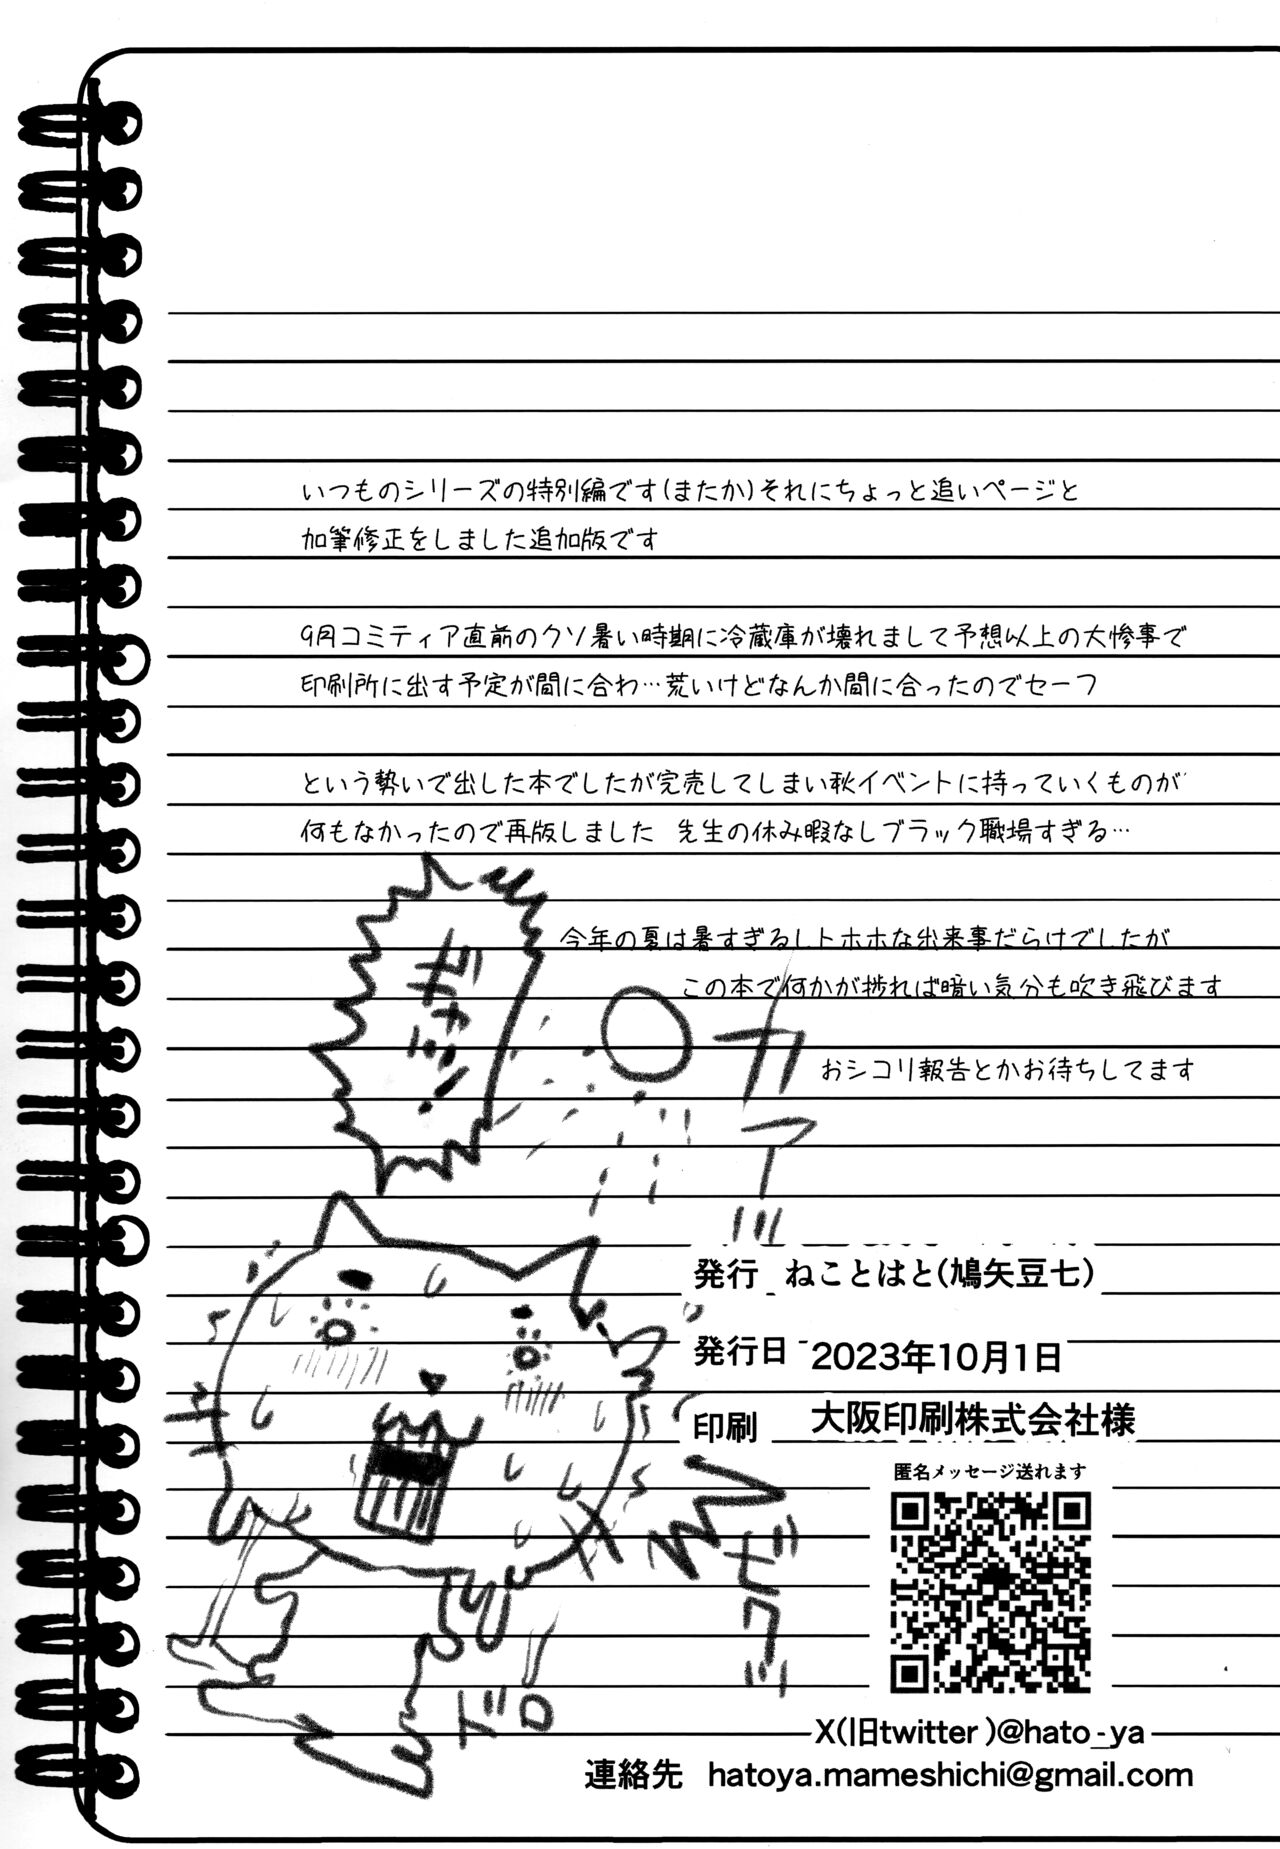 いつものシリーズの特別編です(またか)それにちょっと追いページと
加筆修正をしました追加版です
9月コミティア直前のクソ暑い時期に冷蔵庫が壊れまして予想以上の大惨事で
印刷所に出す予定が間に合わ…荒いけどなんか間に合ったのでセーフ
という勢いで出した本でしたが完売してしまい秋イベントに持っていくものが
何もなかったので再版しました 先生の休み暇なしブラック職場すぎる…
今年の夏は暑すぎるしトホホな出来事だらけでしたが
この本で何かが捗れば暗い気分も吹き飛びます
おシコリ報告とかお待ちしてます
カァ
ドロ
発行 ねことはと(鳩矢豆七)
発行日 2023年10月1日
印刷 大阪印刷株式会社様
匿名メッセージ送れます
X(旧twitter)@hato_ya
連絡先 hatoya.mameshichi@gmail.com